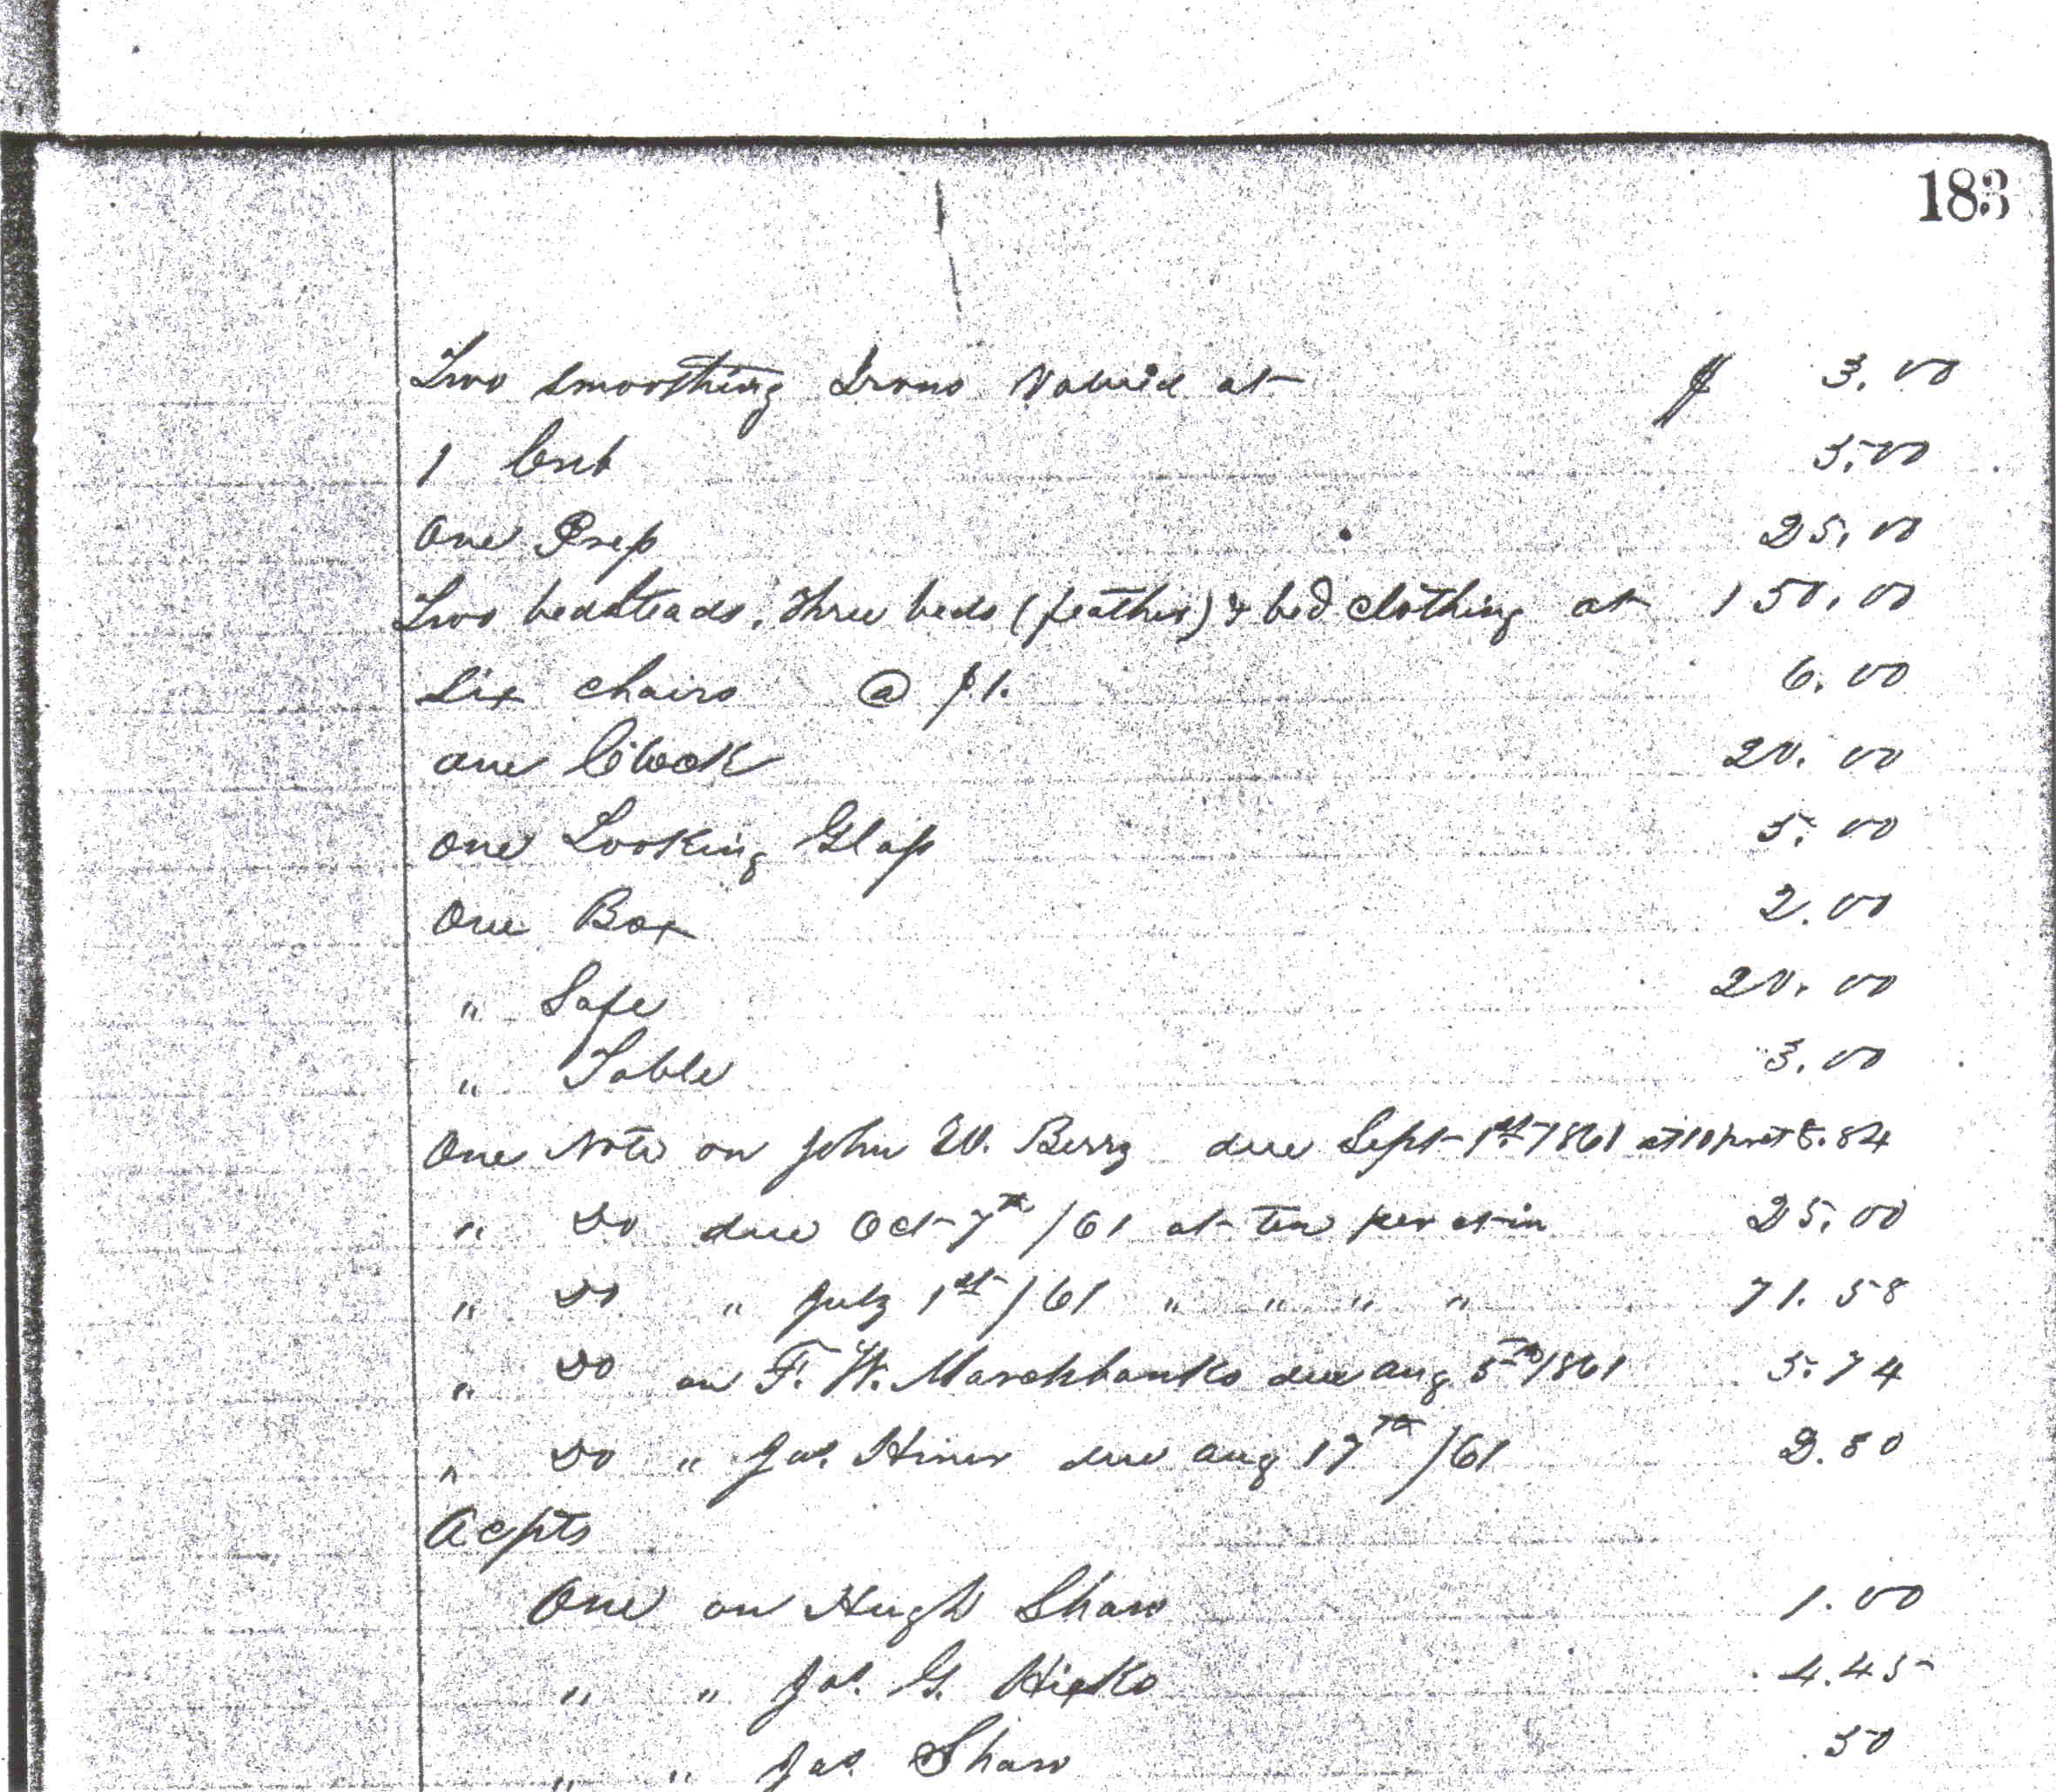 183
Two smoothing Irons Valued at $ 3.00
1 Crib 5.00
One Press 25.00
Two bedsteads, Three beds (feather) & bed clothing at 150.00
Six chairs @ $1. 6.00
one Clock 20.00
One Looking Glass 5.00
One Box 2.00
" Safe 20.00
" Table 3.00
One Note on John W. Berry due Sept 1st 1861 at 10 pr ct 8.84
" Do due Oct 7th /61 at ten per ct in 25.00
" Do " July 1st /61 " " " " 71.58
" Do on F. W. Marchbanks due Aug 5th 1861 5.74
" Do " Jas. Hiner due Aug 17th /61 2.80
Acpts
One on Hugh Shaw 1.00
" " Jas. G. Hicks 4.45
" " Jas. Shaw .50